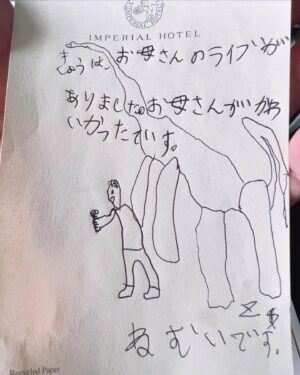 IMPERIAL HOTEL
きょうは、お母さんのライブが
ありました。お母さんがかわ
いかったです。
ねむいです。
Recycled Paper